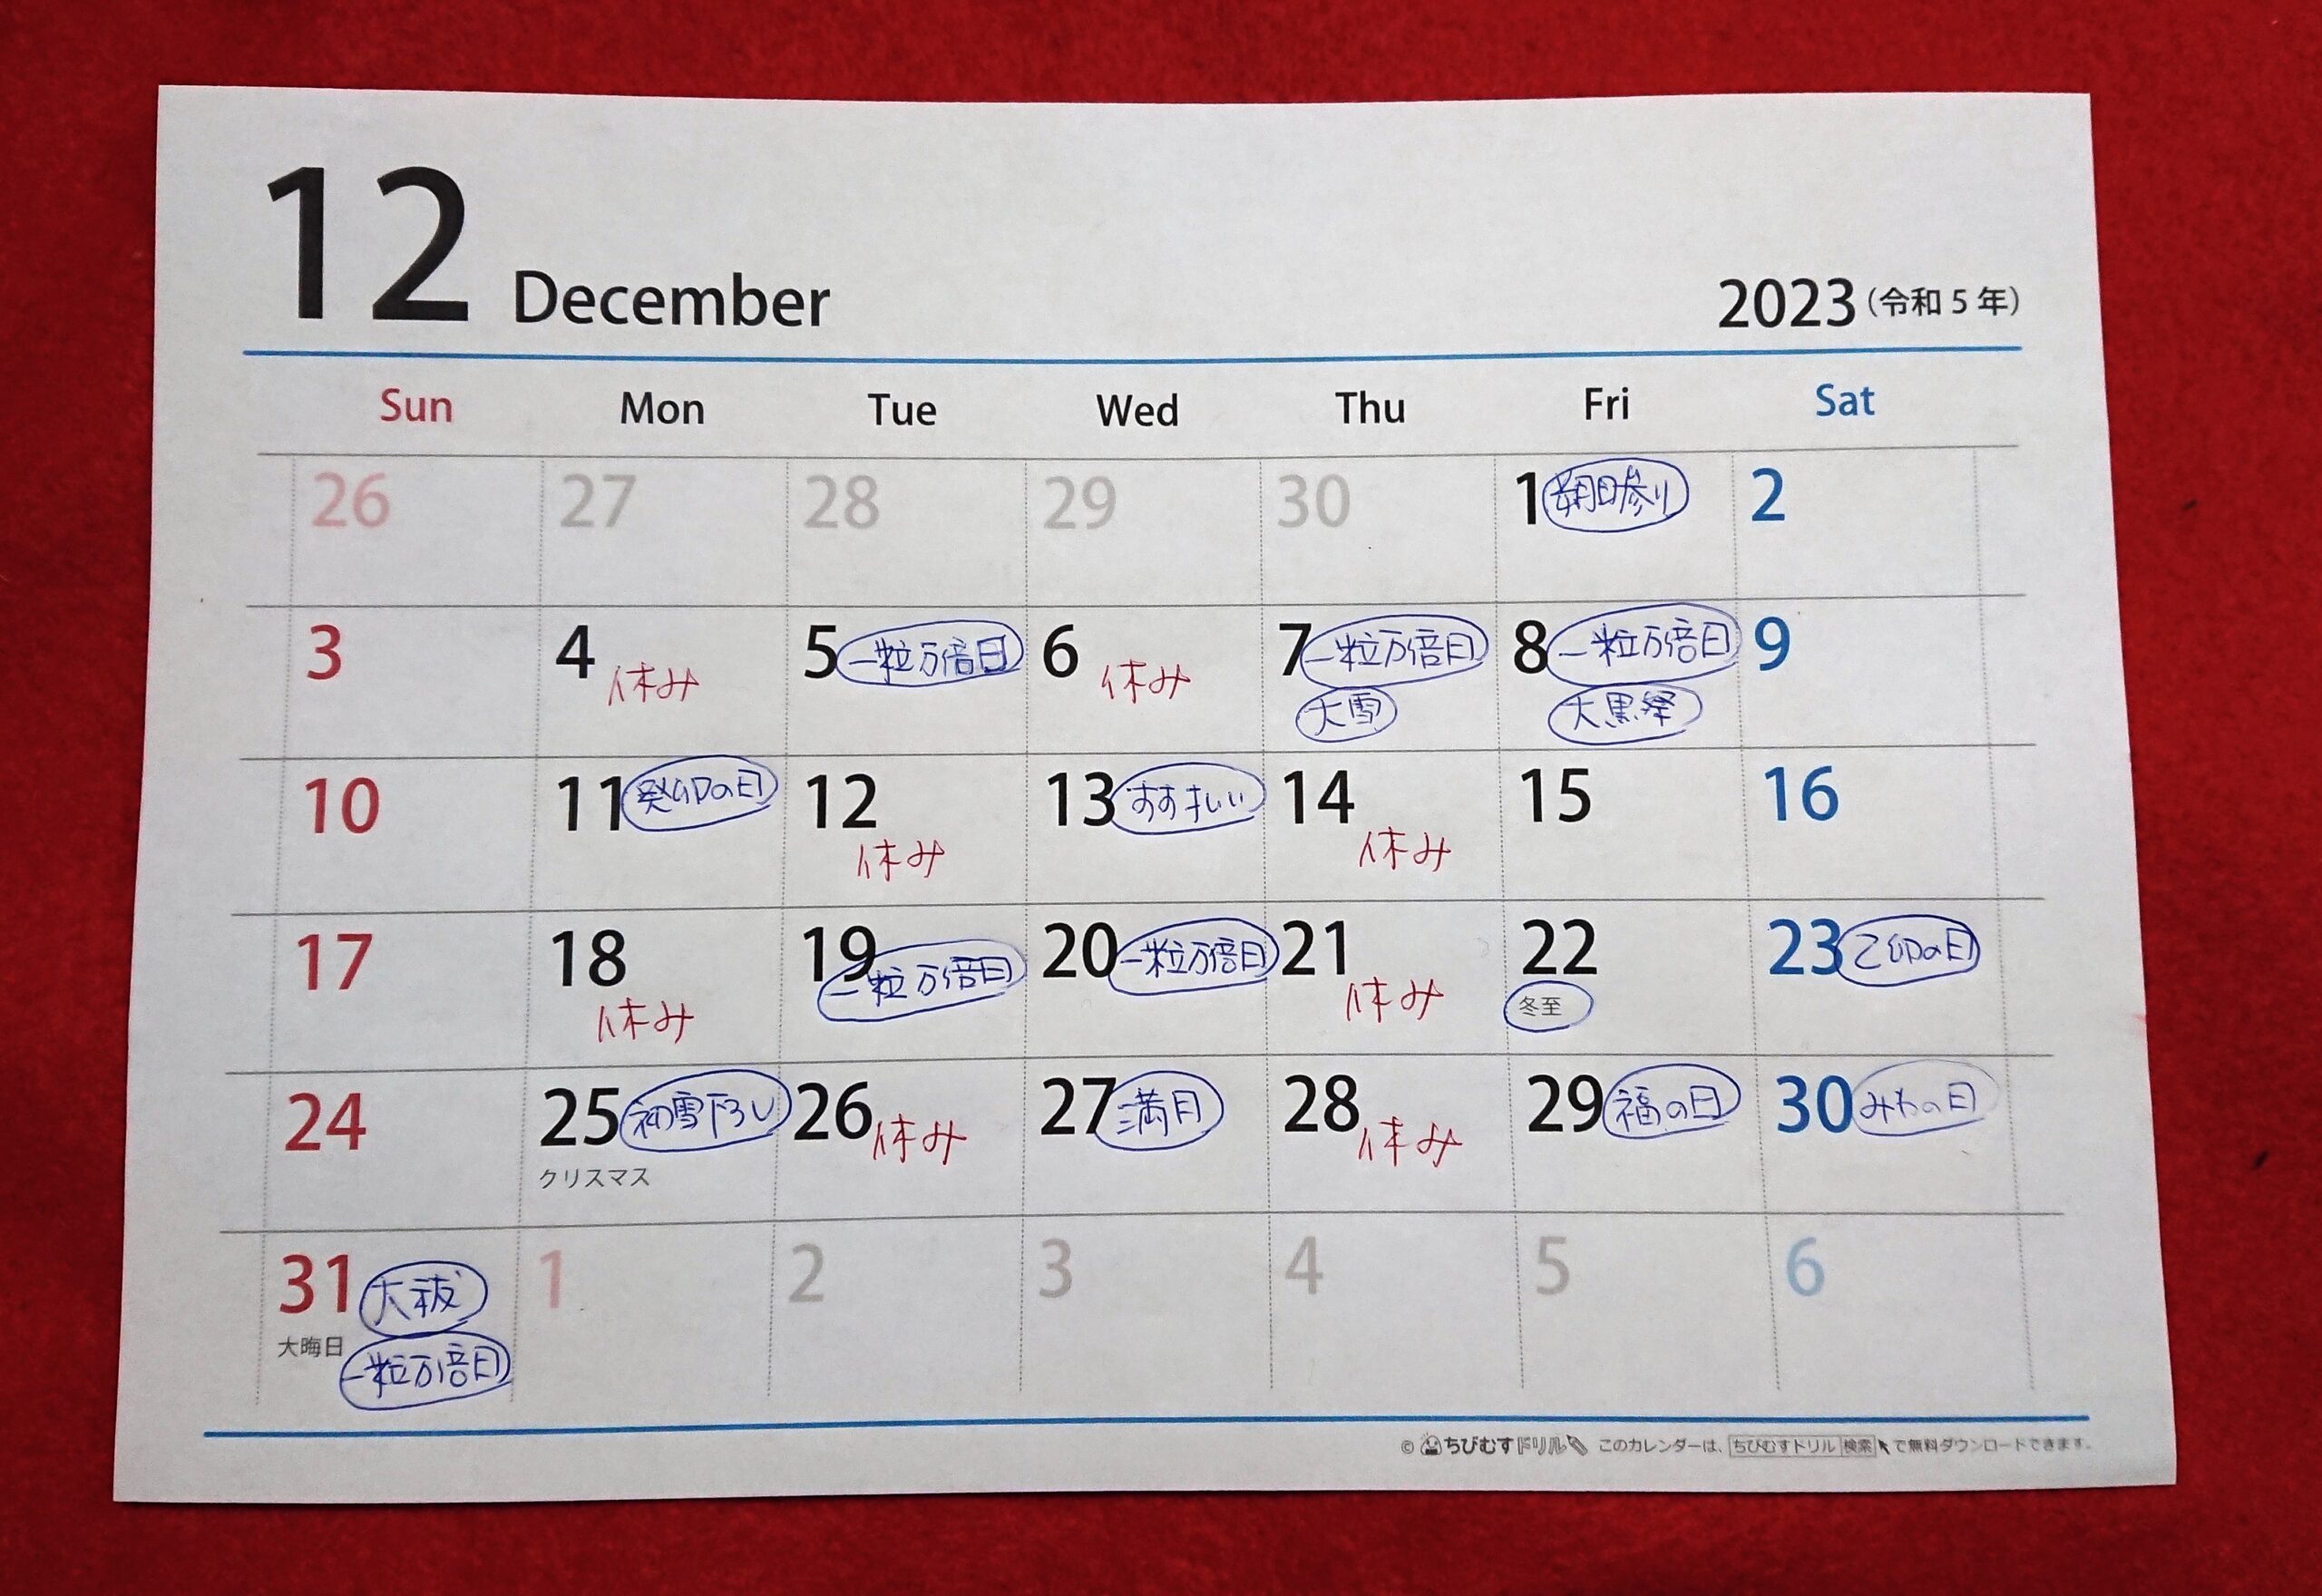 12 December 2023 (令和5年)
Sun Mon Tue Wed Thu Fri Sat
26 27 28 29 30 1 朔日参り 2
3 4 休み 5 一粒万倍日 6 休み 7 一粒万倍日 8 一粒万倍日 9
大雪 大黒祭
10 11 癸卯の日 12 休み 13 すす払い 14 休み 15 16
17 18 休み 19 一粒万倍日 20 一粒万倍日 21 休み 22 23 乙卯の日
冬至
24 25 初雪下ろし 26 休み 27 満月 28 休み 29 福の日 30 みわの日
クリスマス
31 大祓 1 2 3 4 5 6
大晦日 一粒万倍日
© ちびむすドリル このカレンダーは、ちびむすドリル 検索 で無料ダウンロードできます。